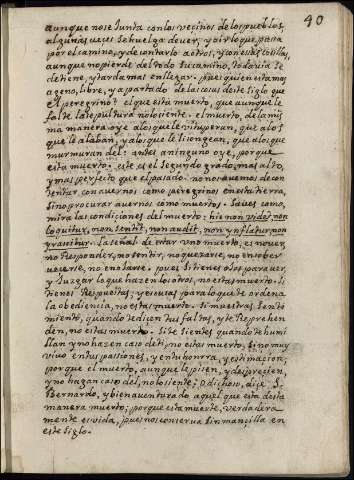 40
aunque no se Junta con los veçinos de los pueblos,
algunas veçes se huelga de ver, y oir lo que passa
por el camino, y de contarlo a otros, y con estas cosillas,
aunque no pierde del todo su camino, todavia se
detiene, y tarda mas en llegar. pues quien esta mas
ageno, libre, y apartado de las cosas deste siglo que
el peregrino? el que esta muerto, que aunque le
falte la sepultura no lo siente. el muerto, de la mis
ma manera oye a los que le vituperan, que a los
que le alaban, y a los que le lisongean, que a los que
murmuran del: antes a ninguno oye, porque
esta muerto. este es el segundo grado, mas alto,
y mas perfecto que el pasado. no nos avemos de con
tentar con avernos como peregrinos en esta tierra,
sino procurar avernos como muertos. Sabes como,
mira las condiciones del muerto: hic non videt, non
loquitur, non sentit, non audit, non ynflatur, non
yrascitur. La señal de estar uno muerto, es no ver,
no Responder, no sentir, no quexarse, no ensober
veçerse, no enojarse. pues si tienes ojos para ver,
y Juzgar lo que hazen los otros, no estas muerto. Si
tienes Respuestas, y escusas para lo que te ordena
la obediençia, no estas muerto. Si muestras senti
miento, quando te diçen tus faltas, y te Reprehen
den, no estas muerto. Si te sientes quando te humi
llan y no hazen caso de ti, no estas muerto, sino muy
vivo en tus pasiones, y en tu honrra, y estimaçion;
porque el muerto, aunque le pisen, y desprecien,
y no hagan caso del, no lo siente; O dichoso, diçe S.
Bernardo, y bienaventurado aquel que esta desta
manera muerto; porque esta muerte, verdadera
mente es vida, pues nos conserva sin manzilla en
este siglo.